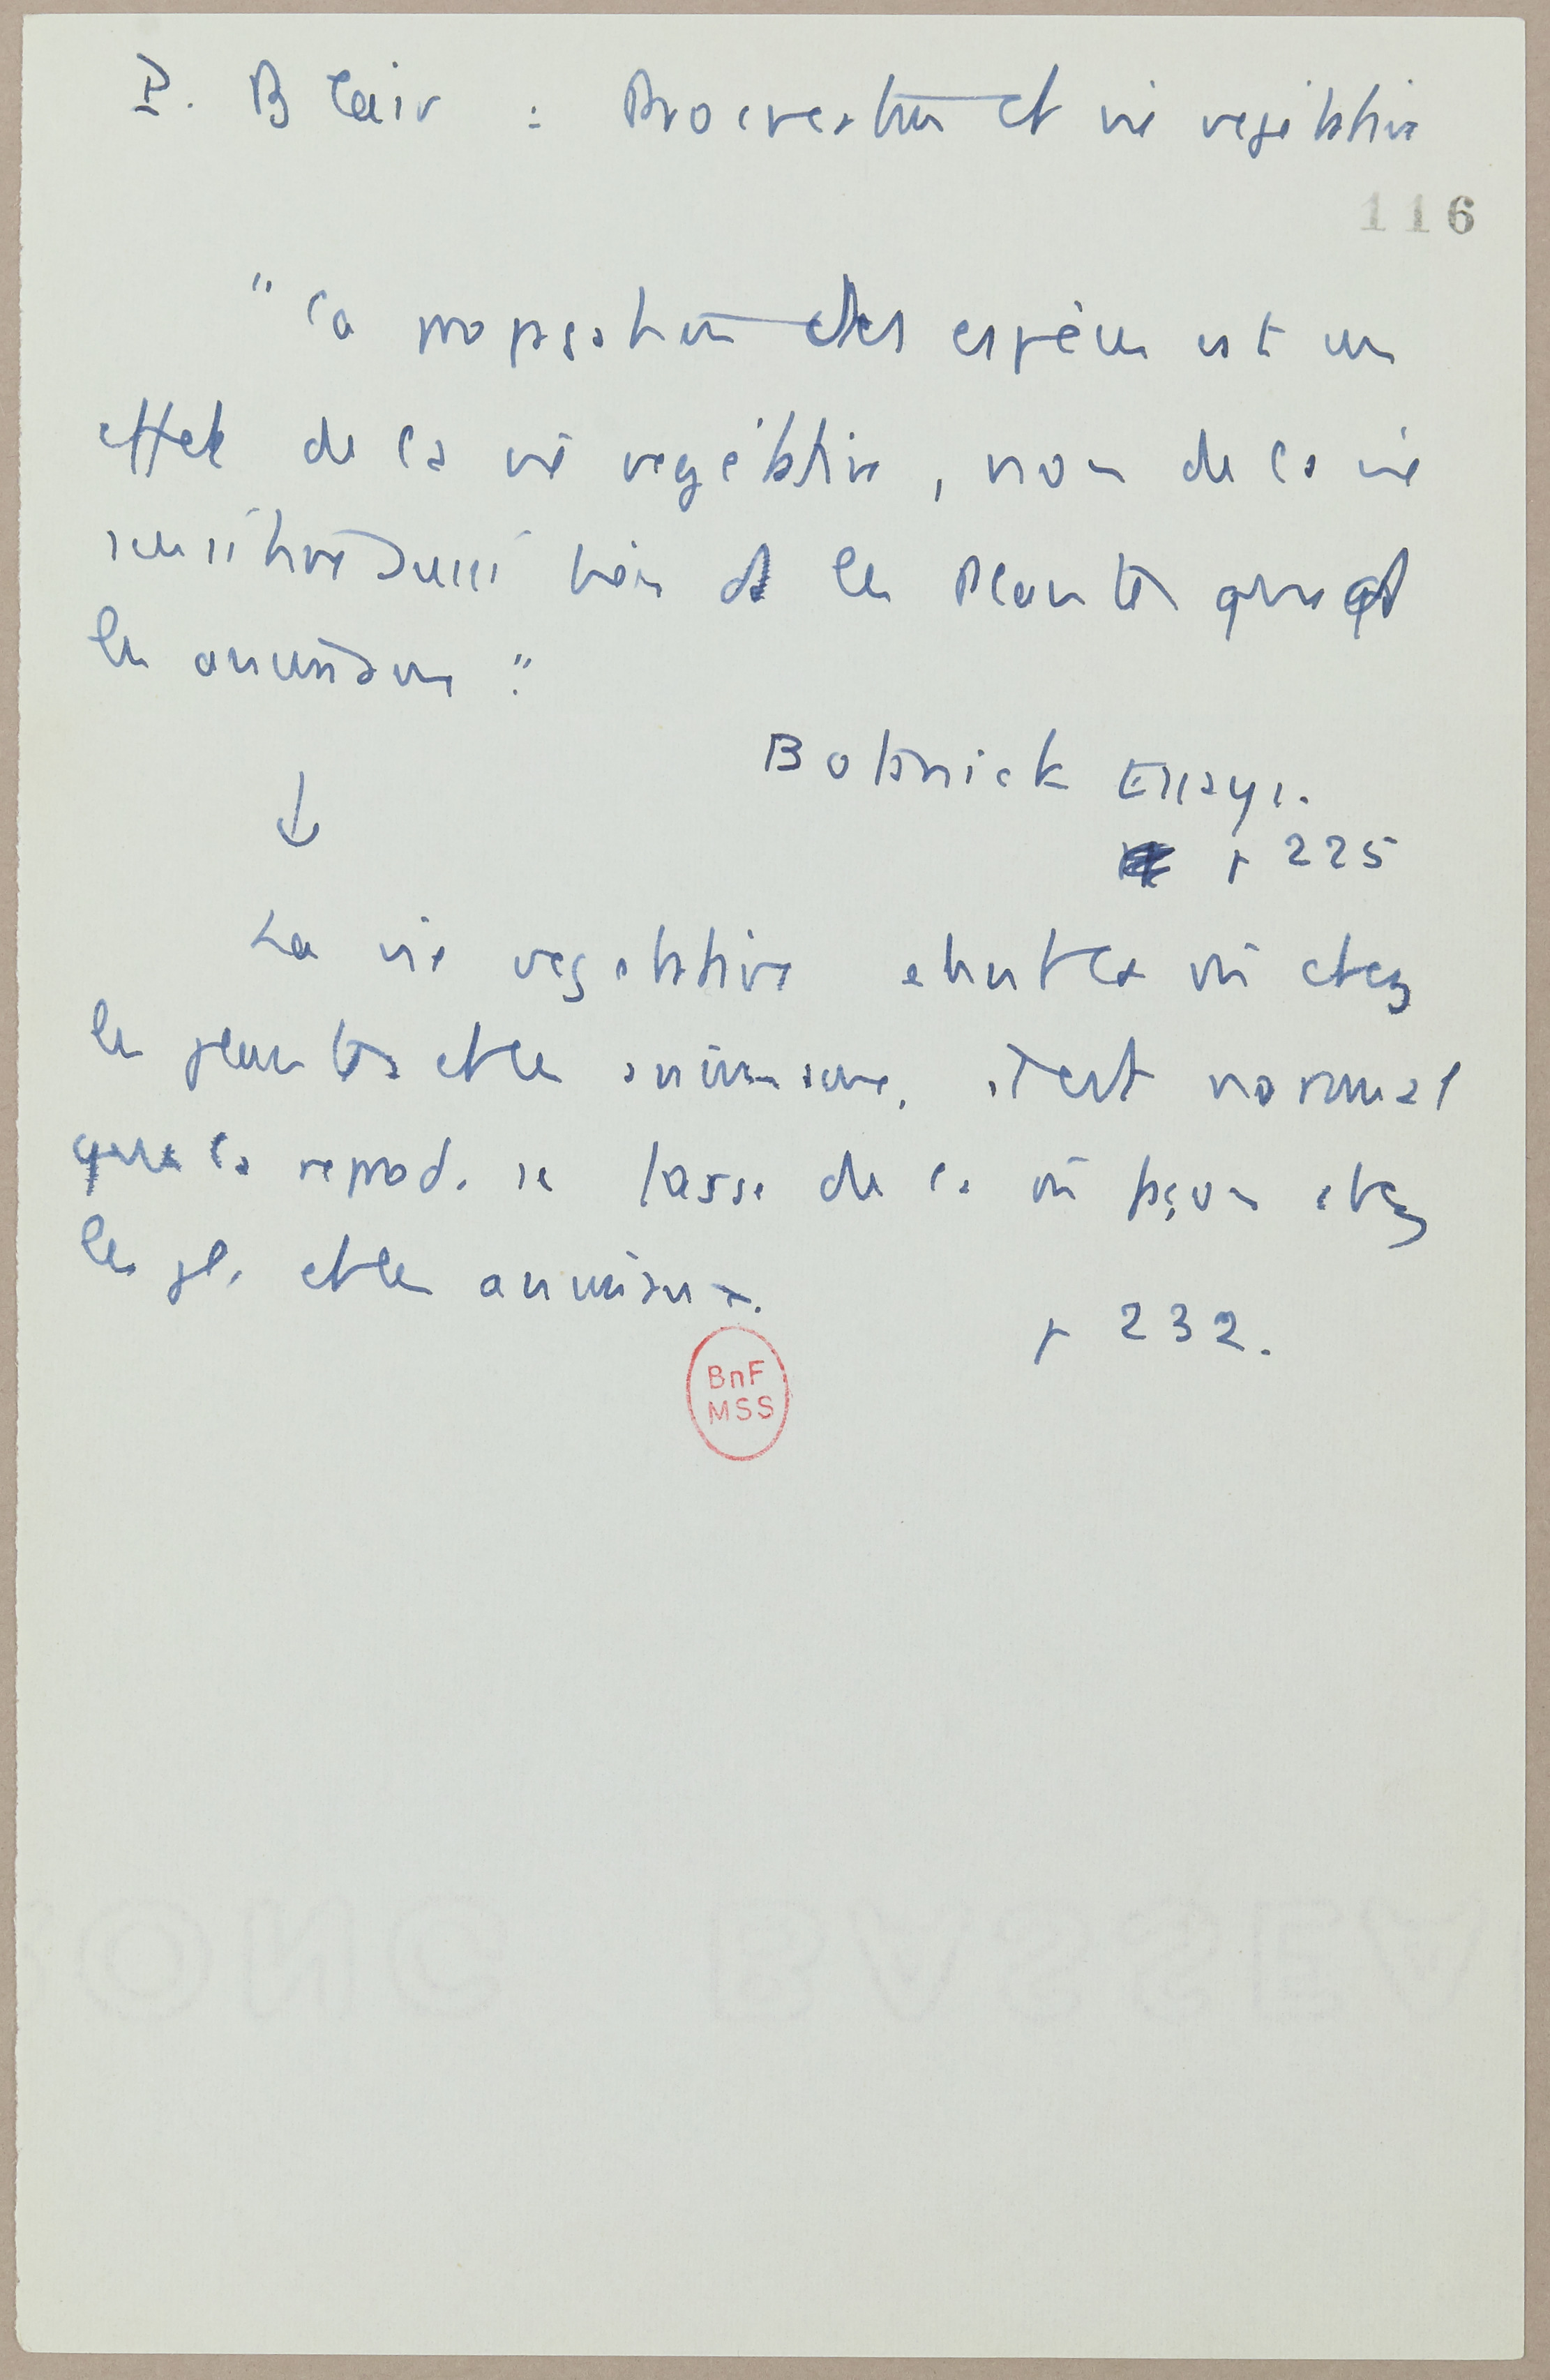 P. Blair : Procreation et vie vegetative
116
"la propagation des espèces est un
effet de la vie végétative, non de la vie
sensitive aussi bien ds les Plantes que ds
les animaux".
Botanick Essays.
p 225
↓
La vie vegetative étant la vie chez
les plantes et les animaux, il est normal
que la reprod. se fasse de la m façon chez
les pl. et les animaux.
p 232.
BnF
MSS